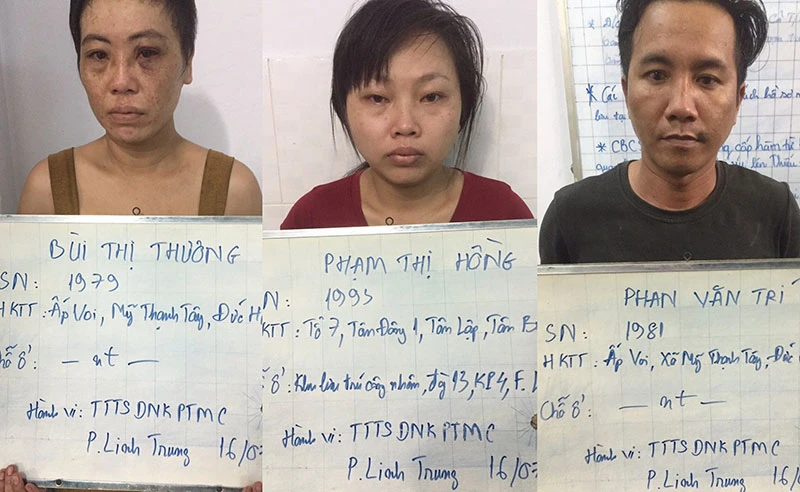 BÙI THỊ THƯƠNG
SN: 1979
HKTT: Ấp Voi, Mỹ Thạnh Tây, Đức H
Chỗ ở: — nt —
Hành vi: TTTSDNKPTMC
P. Linh Trung 16/0
PHẠM THỊ HỒNG
N: 1993
KTT: Tổ 7, Tân Đông 1, Tân Lập, Tân B
ở: Khu lưu trú công nhân, 13, KP4, F.
Hành vi: TTTSDNKPTMC
P. Linh Trung 16/0
* Các
lưu tại
* CBC cấp hàm từ
PHAN VĂN TRÍ
SN: 1981
HKTT: Ấp Voi, Xã Mỹ Thạnh Tây, Đức
Chỗ ở: — nt —
Hành vi: TTTSDNKPTMC
P. Linh Trung 16/0